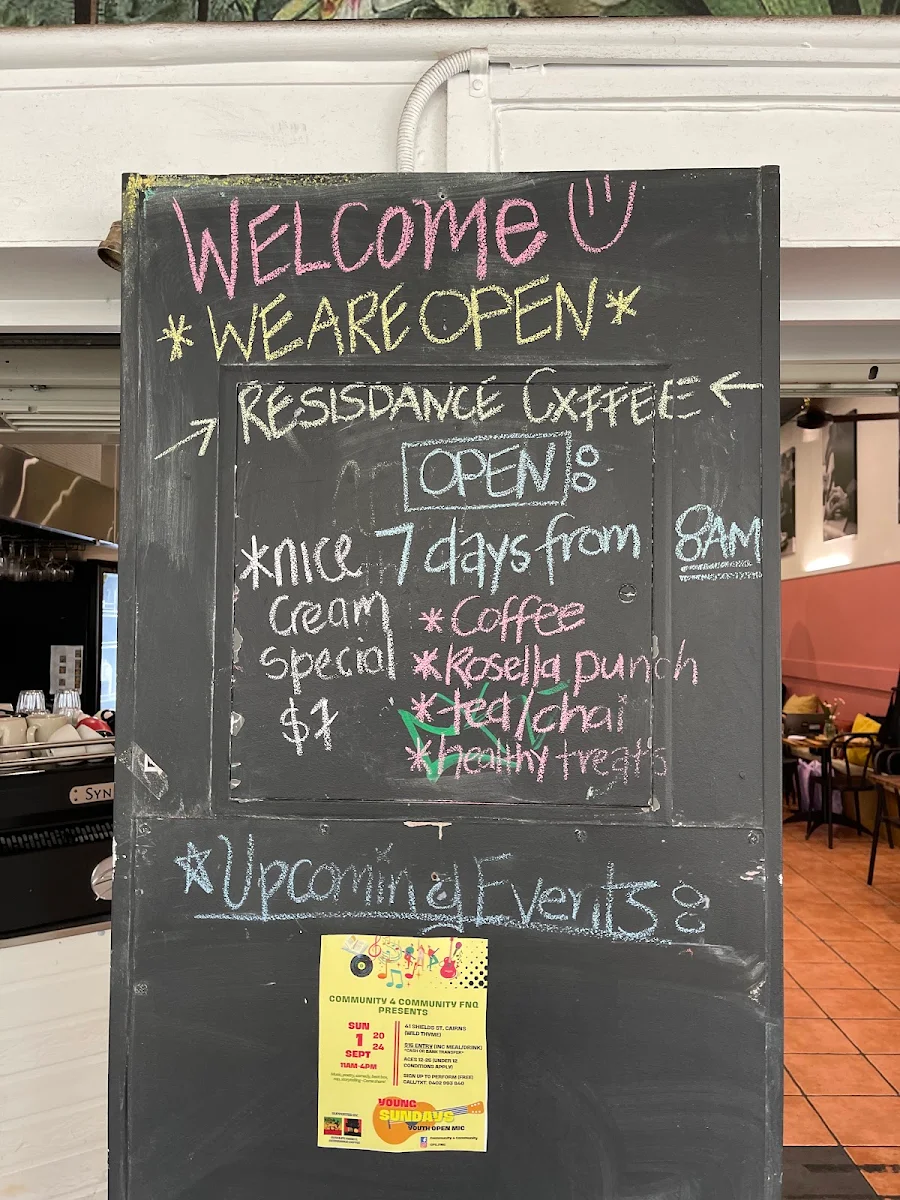 WELCOME
*WE ARE OPEN*
→ RESISDANCE CXFFEE ←
OPEN:
7 days from 8AM
*nice
cream
special
$7
*Coffee
*Rosella punch
*tea/chai
*healthy treats
Upcoming Events:
COMMUNITY 4 COMMUNITY FNQ
PRESENTS
SUN
1
SEPT
20
24
11AM-4PM
41 SHIELDS ST, CAIRNS
(WILD THYME)
$15 ENTRY (INC MEAL/DRINK)
*CASH OR BANK TRANSFER*
AGES 12-25 (UNDER 12
CONDITIONS APPLY)
SIGN UP TO PERFORM (FREE)
CALL/TXT: 0402 993 840
YOUNG
SUNDAYS
YOUTH OPEN MIC
SUPPORTED BY:
Community 4 Community
SYN